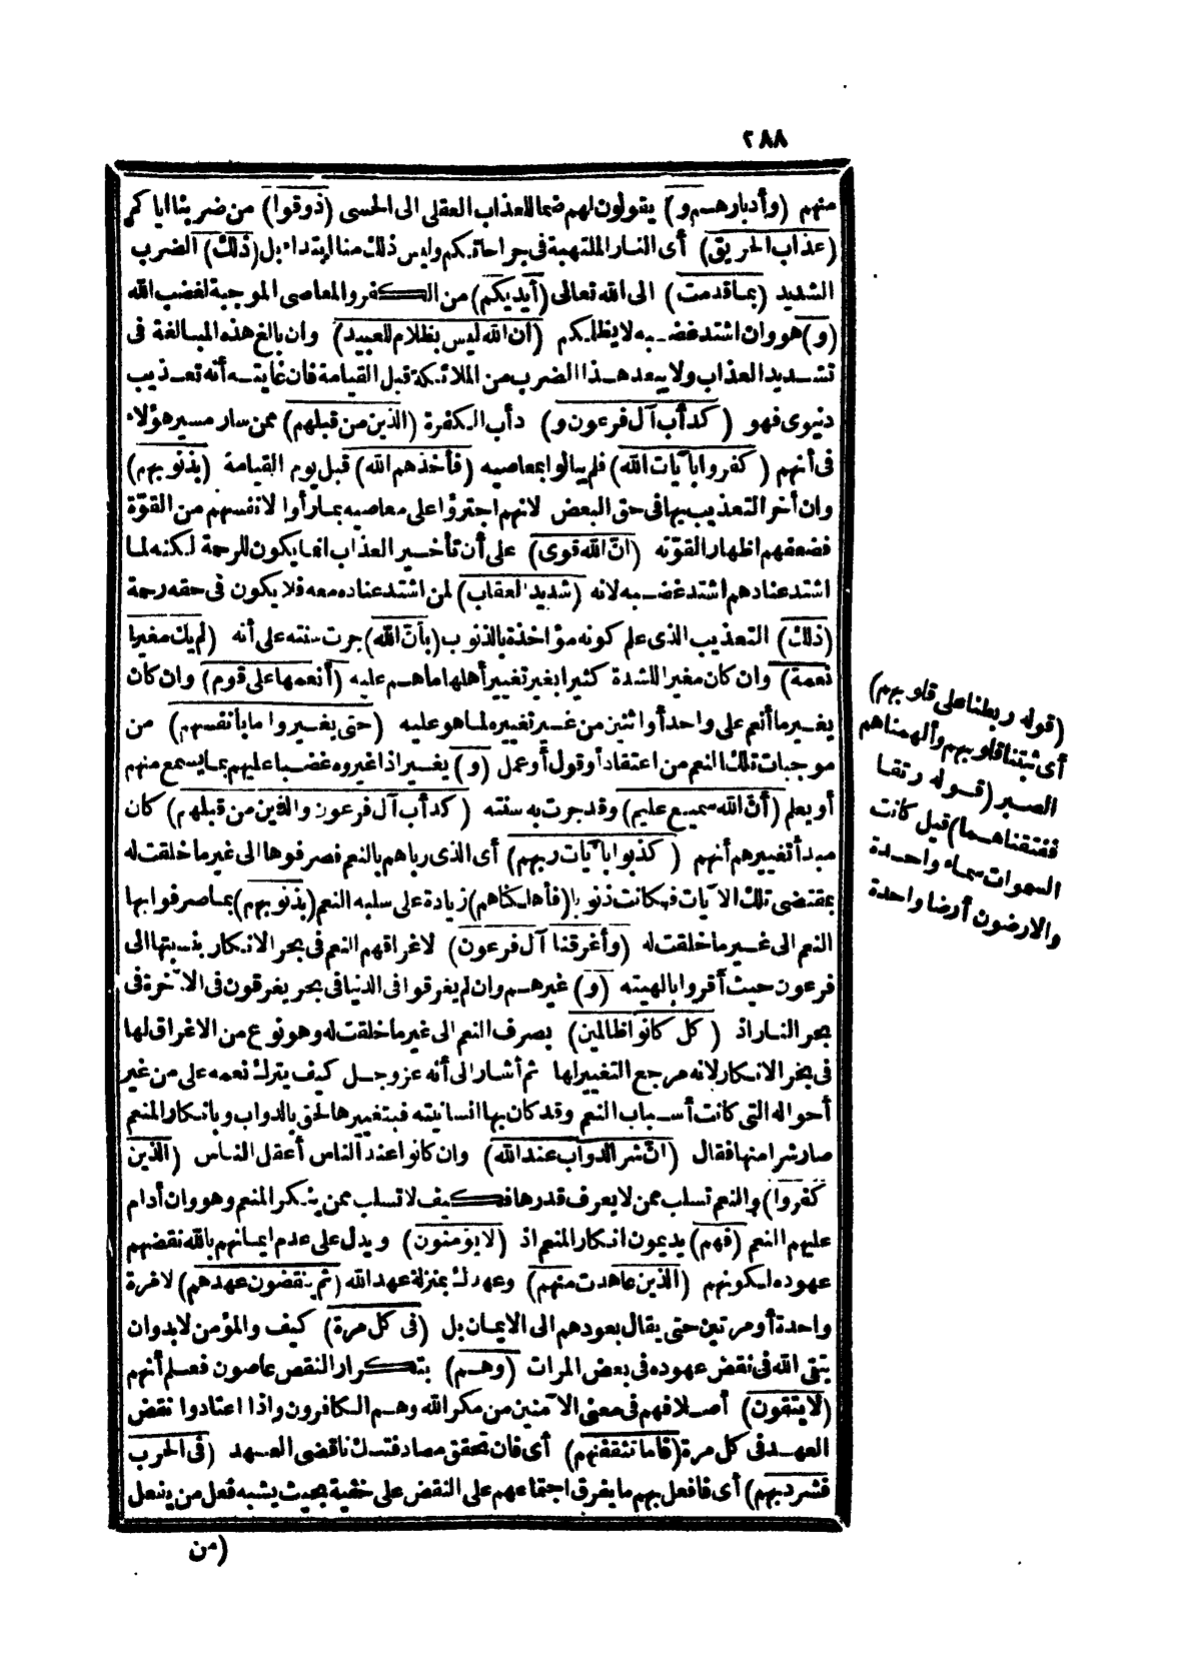 ٢٨٨
منهم (وأدبارهم و) يقولون لهم ضما للعذاب العقلى الى الحسى (ذوقوا) من ضربنا اياكم
(عذاب الحريق) أى النار الملتهبة فى جراحاتكم وليس ذلك منا ابتداء بل (ذلك) الضرب
الشديد (بما قدمت) الى الله تعالى (أيديكم) من الكفر والمعاصى الموجبة لغضب الله
(و) هو وان اشتد غضبه لا يظلمكم (أن الله ليس بظلام للعبيد) وان بالغ هذه المبالغة فى
تشديد العذاب ولا يبعد هذا الضرب من الملائكة قبل القيامة فان غايته أنه تعذيب
دنيوى فهو (كدأب آل فرعون و) دأب الكفرة (الذين من قبلهم) ممن سار مسير هؤلاء
فى أنهم (كفروا بآيات الله) فلم يبالوا بمعاصيه (فأخذهم الله) قبل يوم القيامة (بذنوبهم)
وان أخر التعذيب بها فى حق البعض لانهم اجترؤا على معاصيه بما رأوا لانفسهم من القوّة
فضعفهم اظهار القوّته (انّ الله قوى) على أن تأخير العذاب انما يكون للرحمة لكنه لما
اشتد عنادهم اشتد غضبه لانه (شديد العقاب) لمن اشتد عناده معه فلا يكون فى حقه رحمة
(ذلك) التعذيب الذى علم كونه مؤاخذة بالذنوب (بأن الله) جرت سنته على أنه (لم يك مغيرا
نعمة) وان كان مغيرا للشدة كثيرا بغير تغيير أهلها ماهم عليه (أنعمها على قوم) وان كان
يغير ما أنعم على واحد أو اثنين من غير تغييره لما هو عليه (حتى يغيروا ما بأنفسهم) من
موجبات تلك النعم من اعتقاد أو قول أو عمل (و) يغير اذا غيروه غضبا عليهم بما يسمع منهم
أو يعلم (أنّ الله سميع عليم) وقد جرت به سنته (كدأب آل فرعون والذين من قبلهم) كان
مبدأ تغييرهم أنهم (كذبوا بآيات ربهم) أى الذى رباهم بالنعم فصرفوها الى غير ما خلقت له
بمقتضى تلك الآيات فكانت ذنوبا (فأهلكناهم) زيادة على سلبه النعم (بذنوبهم) بما صرفوا بها
النعم الى غير ما خلقت له (وأغرقنا آل فرعون) لاغراقهم النعم فى بحر الانكار بنسبتها الى
فرعون حيث أقروا بالهيته (و) غيرهم وان لم يغرقوا فى الدنيا فى بحر يغرقون فى الآخرة فى
بحر النار اذ (كل كانوا ظالمين) بصرف النعم الى غير ما خلقت له وهو نوع من الاغراق لها
فى بحر الانكار لانه مرجع التغيير لها ثم أشار الى أنه عز وجل كيف يترك نعمه على من غير
أحواله التى كانت أسباب النعم وقد كان بها انسانيته فبتغييرها لحق بالدواب وبانكار المنعم
صار شرا منها فقال (انّ شر الدواب عند الله) وان كانوا عند الناس أعقل الناس (الذين
كفروا) والنعم تسلب ممن لا يعرف قدرها فكيف لا تسلب ممن ينكر المنعم وهو وان أدام
عليهم النعم (فهم) يديمون انكار المنعم اذ (لا يؤمنون) ويدل على عدم ايمانهم بالله نقضهم
عهوده لكونهم (الذين عاهدت منهم) وعهدك بمنزلة عهد الله (ثم ينقضون عهدهم) لا مرة
واحدة أو مرتين حتى يقال بعودهم الى الايمان بل (فى كل مرة) كيف والمؤمن لا بد وان
يتقى الله فى نقض عهوده فى بعض المرات (وهم) بتكرار النقض عاصون فعلم أنهم
(لا يتقون) أصلا فهم فى معنى الآمنين من مكر الله وهم الكافرون واذا اعتادوا نقض
العهد فى كل مرة (فاما تثقفنهم) أى فان تحقق مصادفتك ناقضى العهد (فى الحرب
فشرد بهم) أى فافعل بهم ما يفرق اجتماعهم على النقض على خفية بحيث يشبه فعل من ينعل
(من
(قوله ربطنا على قلوبهم)
أى ثبتنا قلوبهم وألهمناهم
الصبر (قوله رتقا
ففتقناهما) قيل كانت
السموات سماء واحدة
والارضون أرضا واحدة